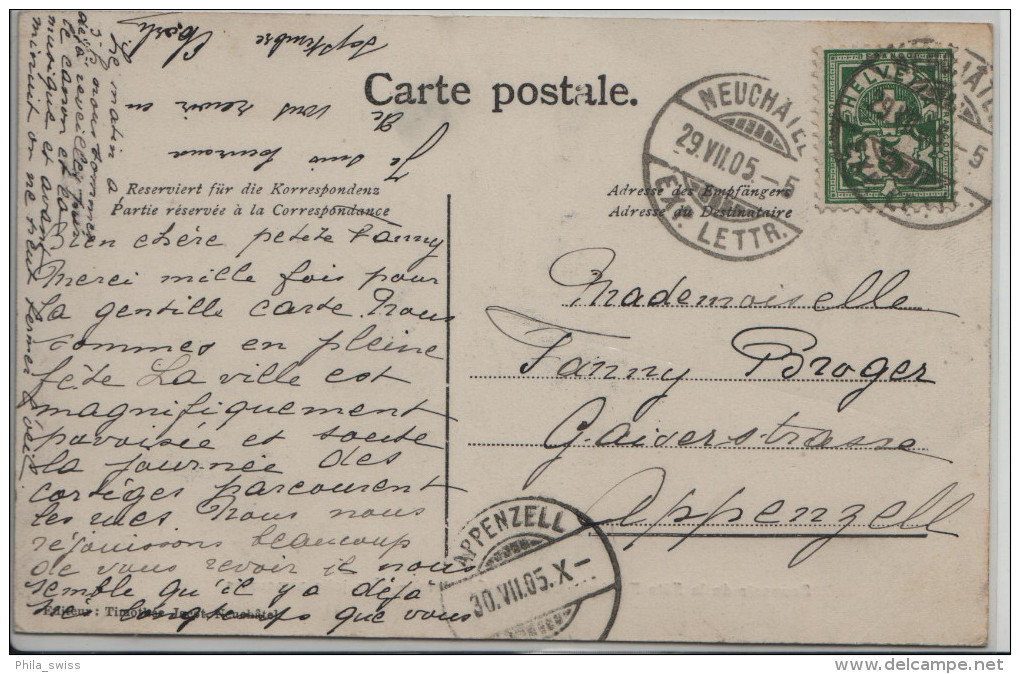 Carte postale.
Reserviert für die Korrespondenz
Partie réservée à la Correspondance
Adresse des Empfängers
Adresse du Destinataire
NEUCHÂTEL
29.VII.05.-5
EXP. LETTR.
HELVETIA
Mademoiselle
Fanny Broger
Gaiserstrasse
Appenzell
APPENZELL
30.VII.05.X-
Bien chère petite Fanny
Merci mille fois pour
la gentille carte. Nous
sommes en pleine
fête La ville est
magnifiquement
pavoisée et toute
la journée des
cortèges parcourent
les rues. Nous nous
réjouissons beaucoup
de vous revoir il nous
semble qu'il y a déjà
très longtemps que vous
Ce matin à
3 h. nous sommes
déjà réveillés par
le canon et la
musique et avant
minuit on ne peut fermer l'œil.
septembre
vous revoir en
Je me
Editeur: Timothée Jacot, Neuchâtel
Phila_swiss
delcampe.net